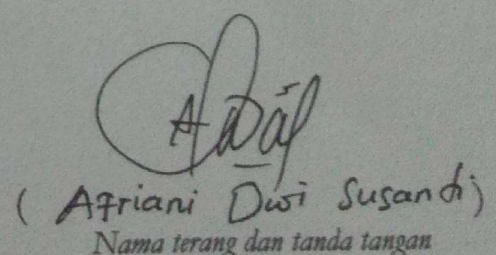 ( Afriani Dwi Susandi)
Nama terang dan tanda tangan